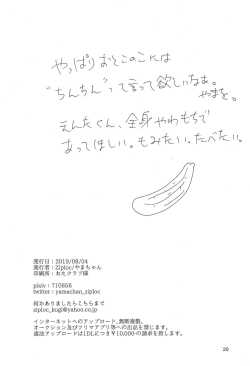 やっぱりおとこのこには
"ちんちん"って言って欲しいなあ。
やまを。
えんたくん、全身やわもちで
あってほしい。もみたい。たべたい。
発行日：2019/08/04
発行者：Ziploc/やまちゃん
印刷所：おたクラブ様
pixiv：710868
twitter：yamachan_ziploc
何かありましたらこちらまで
ziploc_kugi@yahoo.co.jp
インターネットへのアップロード、無断複製、
オークション及びフリマアプリ等への出品を禁じます。
違法アップロードは1DLにつき¥10,000の請求を致します。